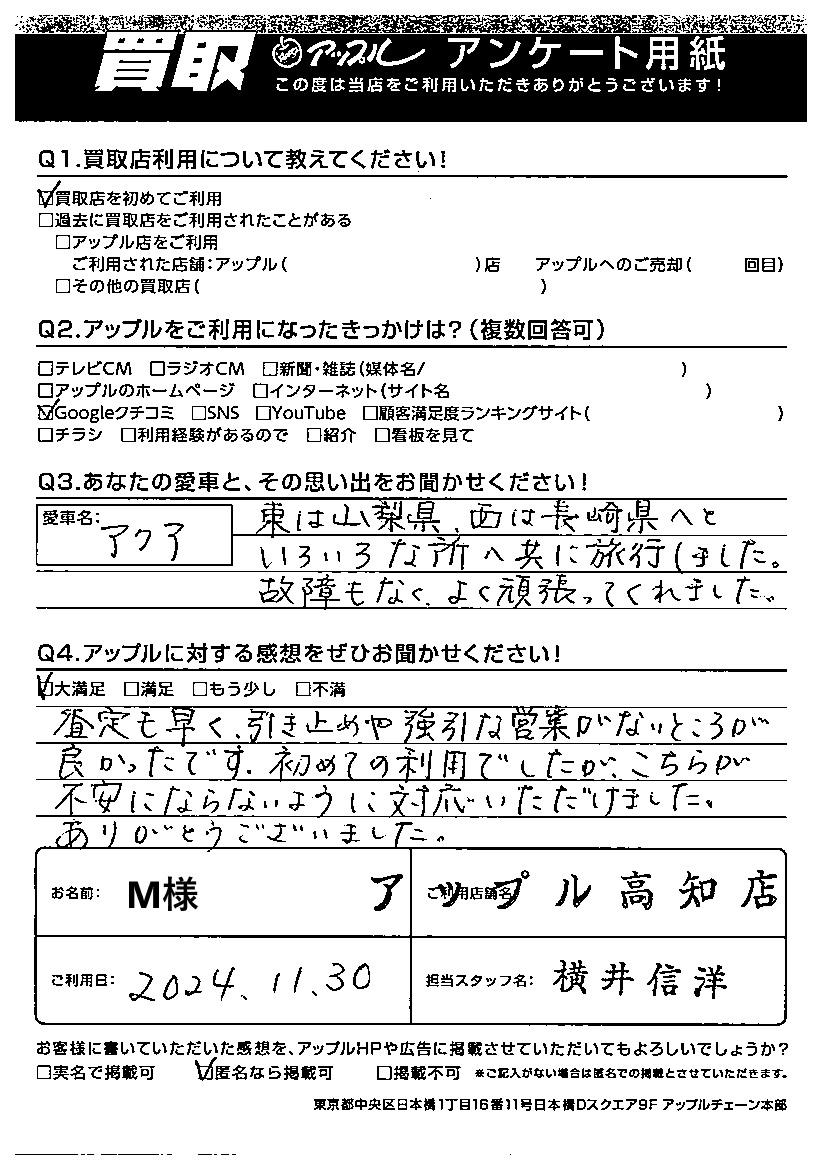 買取 アップル アンケート用紙
この度は当店をご利用いただきありがとうございます!
Q1.買取店利用について教えてください!
☑買取店を初めてご利用
□過去に買取店をご利用されたことがある
□アップル店をご利用
ご利用された店舗:アップル( )店 アップルへのご売却( 回目)
□その他の買取店( )
Q2.アップルをご利用になったきっかけは?(複数回答可)
□テレビCM □ラジオCM □新聞・雑誌(媒体名/ )
□アップルのホームページ □インターネット(サイト名 )
☑Googleクチコミ □SNS □YouTube □顧客満足度ランキングサイト( )
□チラシ □利用経験があるので □紹介 □看板を見て
Q3.あなたの愛車と、その思い出をお聞かせください!
愛車名: アクア
東は山梨県、西は長崎県へと
いろいろな所へ共に旅行しました。
故障もなく、よく頑張ってくれました。
Q4.アップルに対する感想をぜひお聞かせください!
☑大満足 □満足 □もう少し □不満
査定も早く、引き止めや強引な営業がないところが
良かったです。初めての利用でしたが、こちらが
不安にならないように対応いただけました。
ありがとうございました。
お名前: M様 ご利用店舗名 アップル高知店
ご利用日: 2024.11.30 担当スタッフ名: 横井信洋
お客様に書いていただいた感想を、アップルHPや広告に掲載させていただいてもよろしいでしょうか?
□実名で掲載可 ☑匿名なら掲載可 □掲載不可 ※ご記入がない場合は匿名での掲載とさせていただきます。
東京都中央区日本橋1丁目16番11号日本橋Dスクエア9F アップルチェーン本部